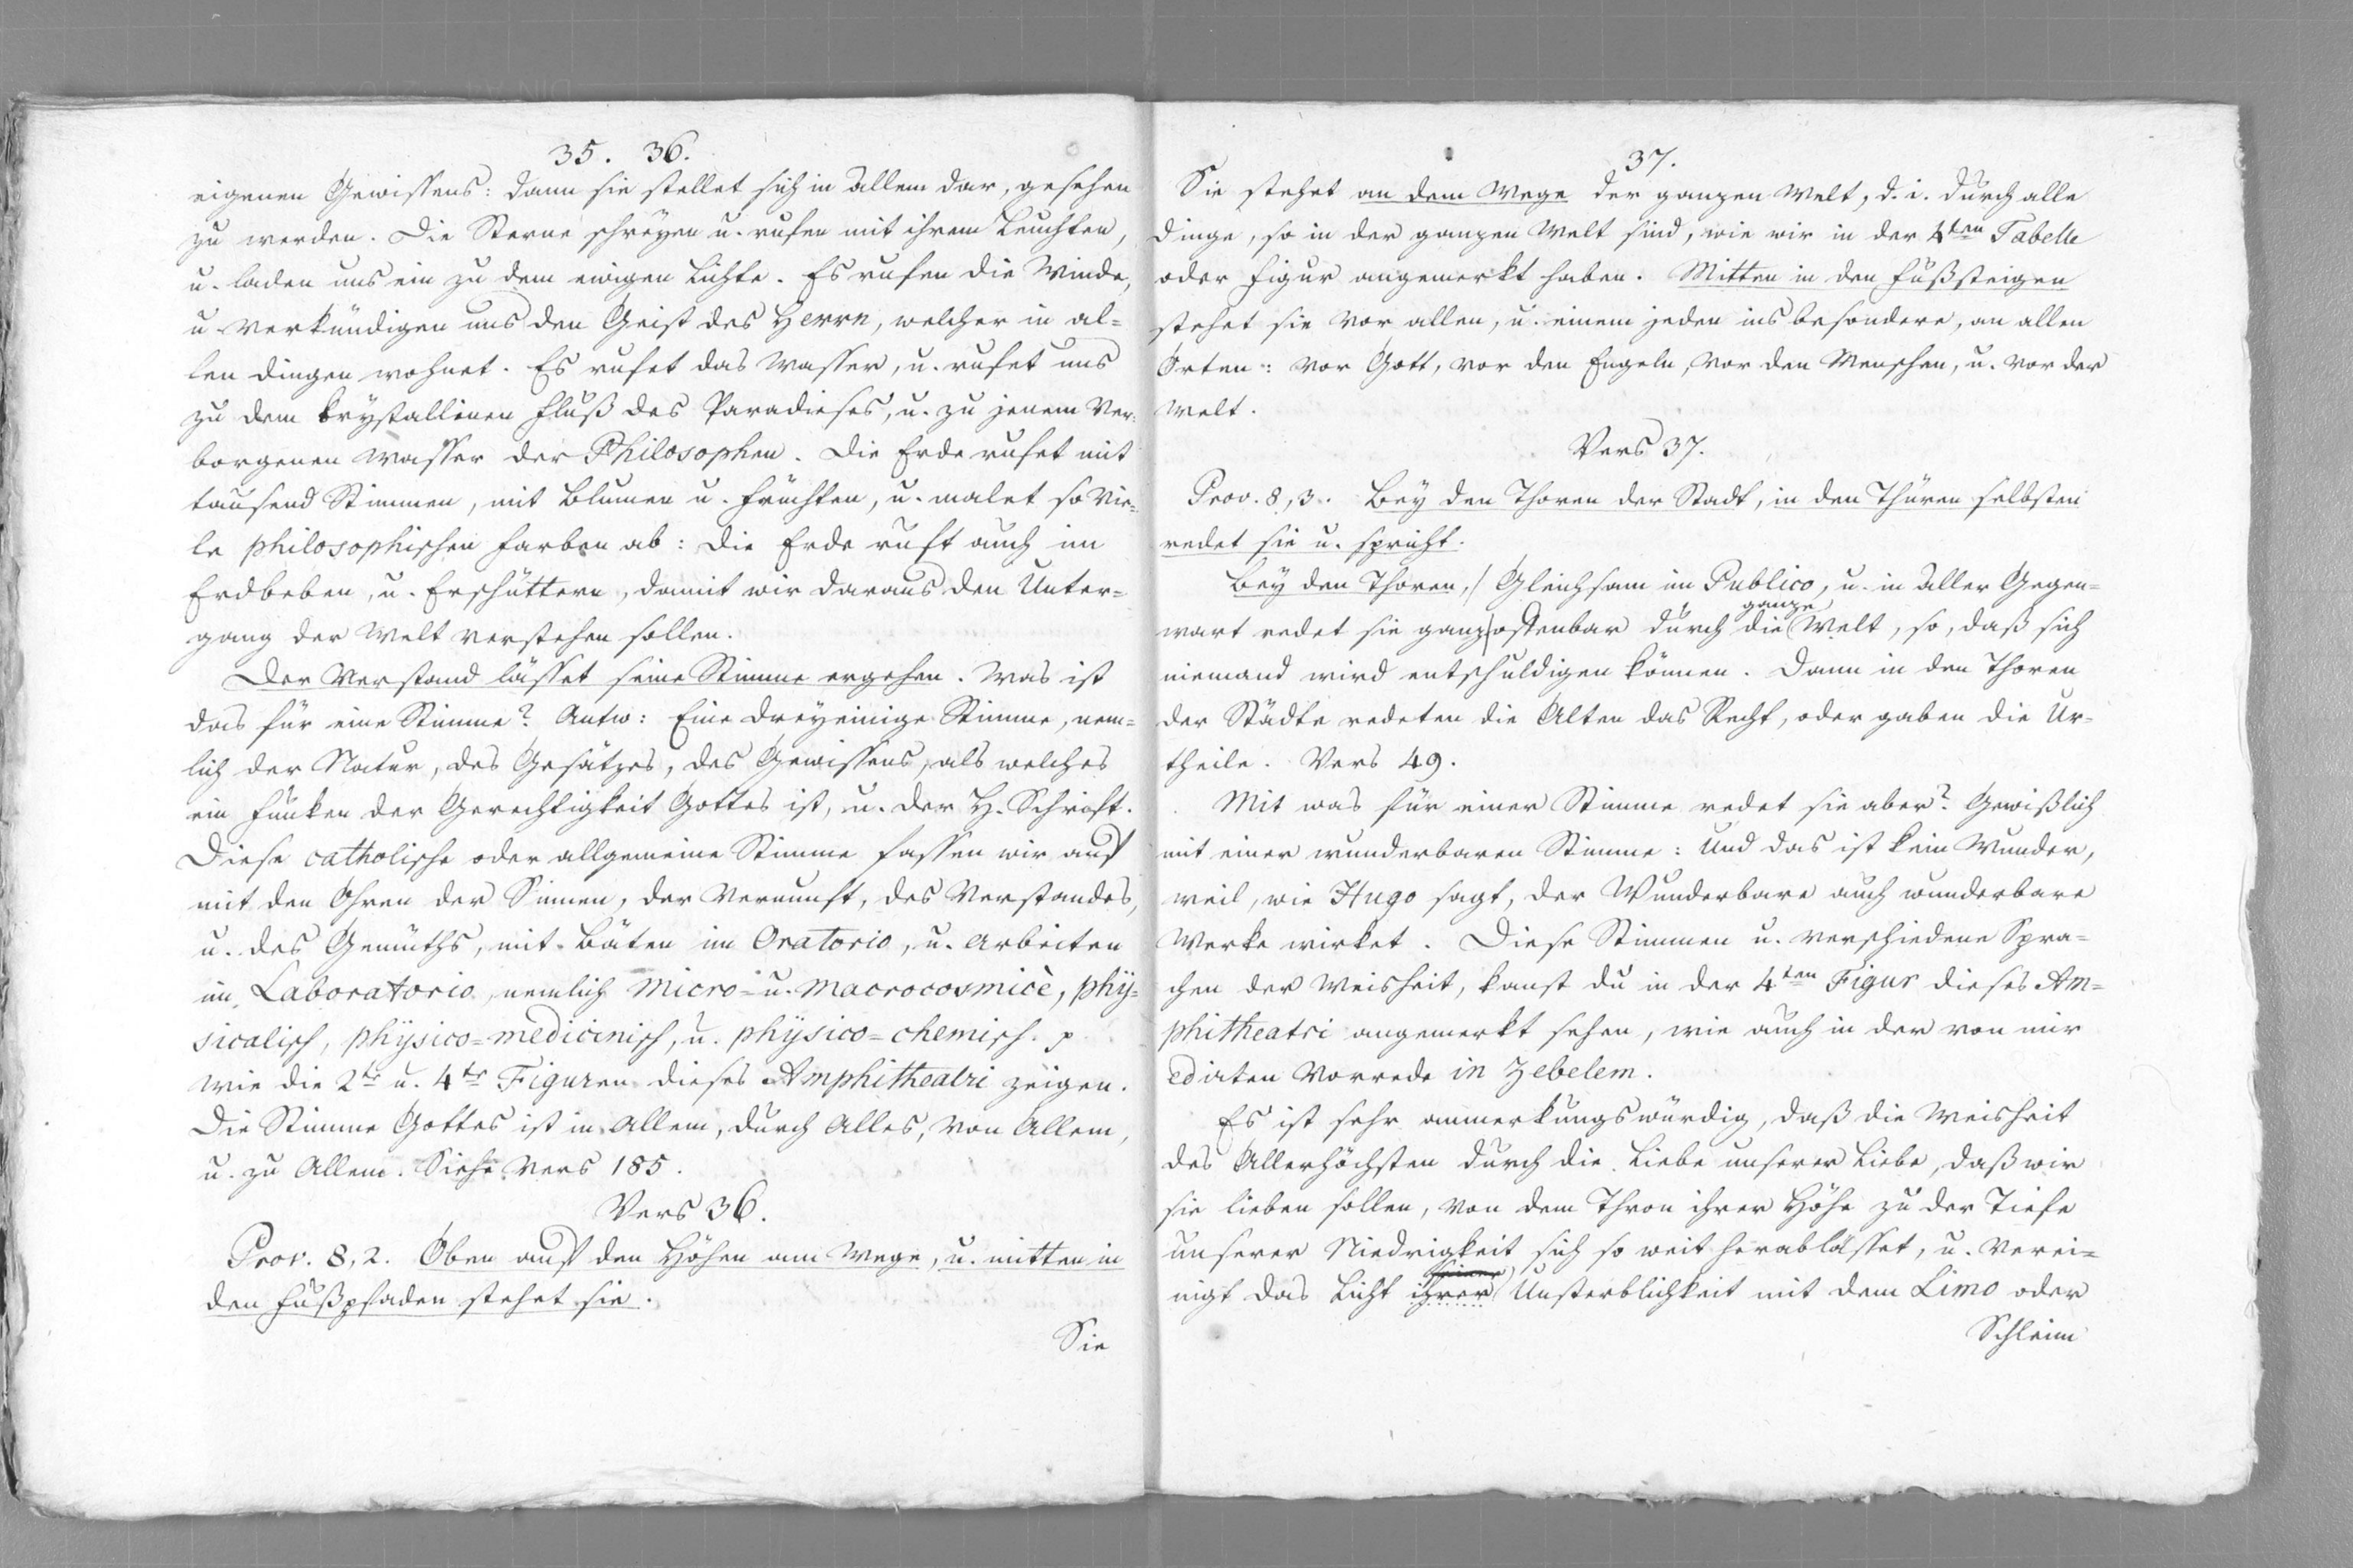 35. 36.
eigenen Gewissens: dann sie stellet sich in allem dar, gesehen
zu werden. Die Sterne schreyen u. rufen mit ihrem Leuchten,
u. laden uns ein zu dem ewigen Lichte. Es rufen die Winde,
u verkündigen uns den Geist des Herrn, welcher in al=
len dingen wohnet. Es rufet das Wasser, u. rufet uns
zu dem krystallinen Fluß des Paradieses, u. zu jenem Ver=
borgenen Wasser der Philosophen. Die Erde rufet mit
tausend Stimmen, mit Blumen u. Früchten, u. malet so vie=
le philosophischen Farben ab: die Erde ruft auch im
Erdbeben, u. Erschüttern, damit wir daraus den Unter=
gang der Welt verstehen sollen.
Der Verstand lässet seine Stimme ergehen. Was ist
das für eine Stimme? Antw: Eine dreyeinige Stimme, nem=
lich der Natur, des Gesätzes, des Gewissens, als welches
ein Funken der Gerechtigkeit Gottes ist, u. der H. Schrift.
Diese catholische oder allgemeine Stimme fassen wir auf
mit den Ohren der Sinnen, der Vernunft, des Verstandes,
u. des Gemüths, mit Bäten im Oratorio, u. Arbeiten
im Laboratorio, nemlich Micro= u. Macrocosmicè, phy=
sicalisch, physico=medicinisch, u. physico=chemisch. p
wie die 2te u. 4te Figuren dieses Amphitheatri zeigen.
Die Stimme Gottes ist in Allem, durch Alles, von Allem,
u. zu Allem. Siehe Vers 185.
Vers 36.
Prov. 8, 2. Oben auf den Höhen am Wege, u. mitten in
den Fußpfaden stehet sie.
Sie
37.
Sie stehet an dem Wege der ganzen Welt, d. i. durch alle
Dinge, so in der ganzen Welt sind, wie wir in der 4ten Tabelle
oder Figur angemerkt haben. Mitten in den Fußsteigen
stehet sie vor allen, u. einem jeden ins besondere, an allen
Orten: vor Gott, vor den Engeln, vor den Menschen, u. vor der
Welt.
Vers 37.
Prov. 8, 3. Bey den Thoren der Stadt, in den Thüren selbsten
redet sie u. spricht.
Bey den Thoren,/ Gleichsam im Publico, u. in aller Gegen=
ganze
wart redet sie ganz offenbar durch die Welt, so, daß sich
niemand wird entschuldigen können. Dann in den Thoren
der Städte redeten die Alten das Recht, oder gaben die Ur=
theile. Vers 49.
Mit was für einer Stimme redet sie aber? Gewißlich
mit einer wunderbaren Stimme: Und das ist kein Wunder,
weil, wie Hugo sagt, der Wunderbare auch wunderbare
Werke wirket. Diese Stimmen u. verschiedene Spra=
chen der Weisheit, kanst du in der 4ten Figur dieses Am=
phitheatri angemerkt sehen, wie auch in der von mir
edirten Vorrede in Zebelem.
Es ist sehr anmerkungswürdig, daß die Weisheit
des Allerhöchsten durch die Liebe unserer Liebe, daß wir
sie lieben sollen, von dem Thron ihrer Höhe zu der Tiefe
unserer Niedrigkeit sich so weit herablässet, u. verei=
nigt das Licht ihrer Unsterblichkeit mit dem Limo oder
Schleim